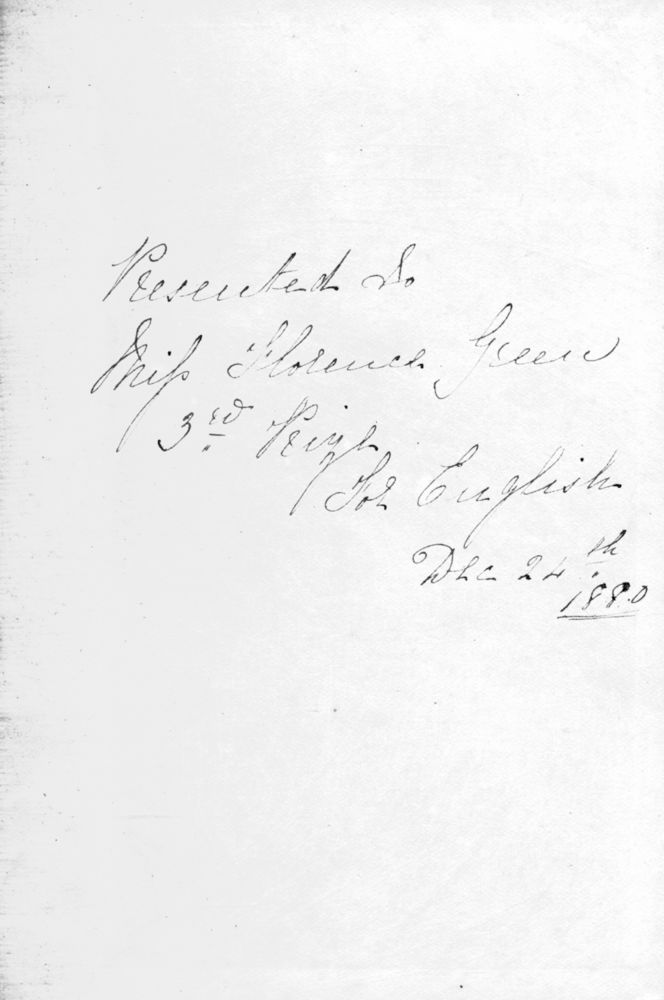 Presented To
Miss Florence Green
3rd Prize
For English
Dec 24th
1880